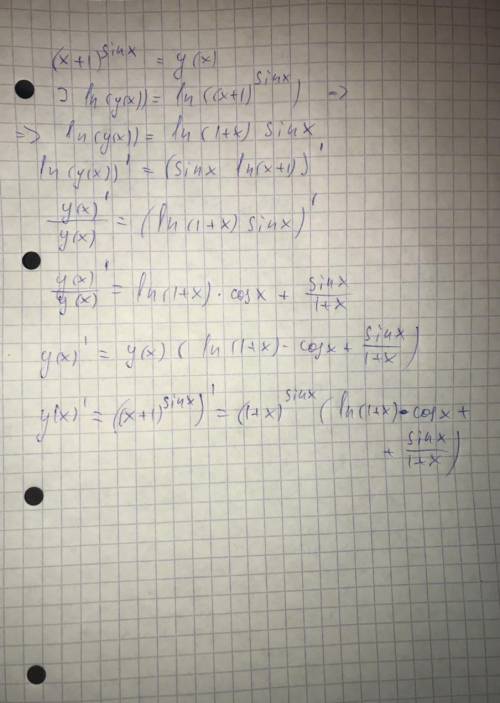 (x+1)^sinx = y(x)
⊃ ln(y(x)) = ln((x+1)^sinx) =>
=> ln(y(x)) = ln(1+x) sinx
ln(y(x))' = (sinx ln(x+1))'
y(x)'/y(x) = (ln(1+x) sinx)'
y(x)'/y(x) = ln(1+x) · cosx + sinx/1+x
y(x)' = y(x) ( ln(1+x) · cosx + sinx/1+x )
y(x)' = ((x+1)^sinx)' = (1+x)^sinx ( ln(1+x) · cosx +
+ sinx/1+x )